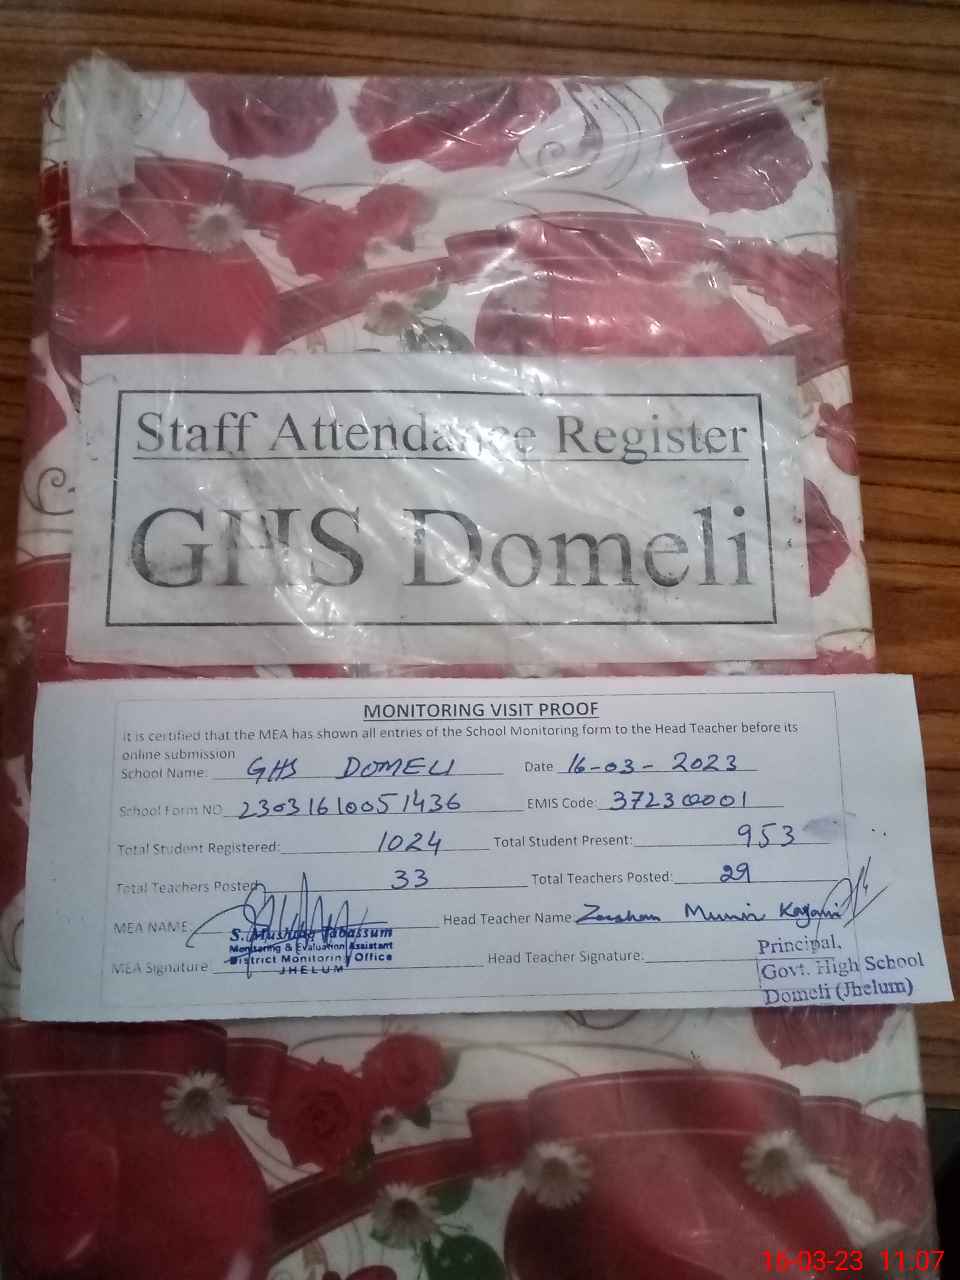 Staff Attendance Register
GHS Domeli
MONITORING VISIT PROOF
It is certified that the MEA has shown all entries of the School Monitoring form to the Head Teacher before its
online submission
School Name: GHS DOMELI Date 16-03-2023
School Form NO 23031610051436 EMIS Code: 37230001
Total Student Registered: 1024 Total Student Present: 953
Total Teachers Posted 33 Total Teachers Posted: 29
MEA NAME: Head Teacher Name: Zeeshan Munir Kayani
S. Mushtaq Tabassum
Monitoring & Evaluation Assistant
District Monitoring Office
JHELUM
MEA Signature Head Teacher Signature:
Principal,
Govt. High School
Domeli (Jhelum)
16-03-23 11:07